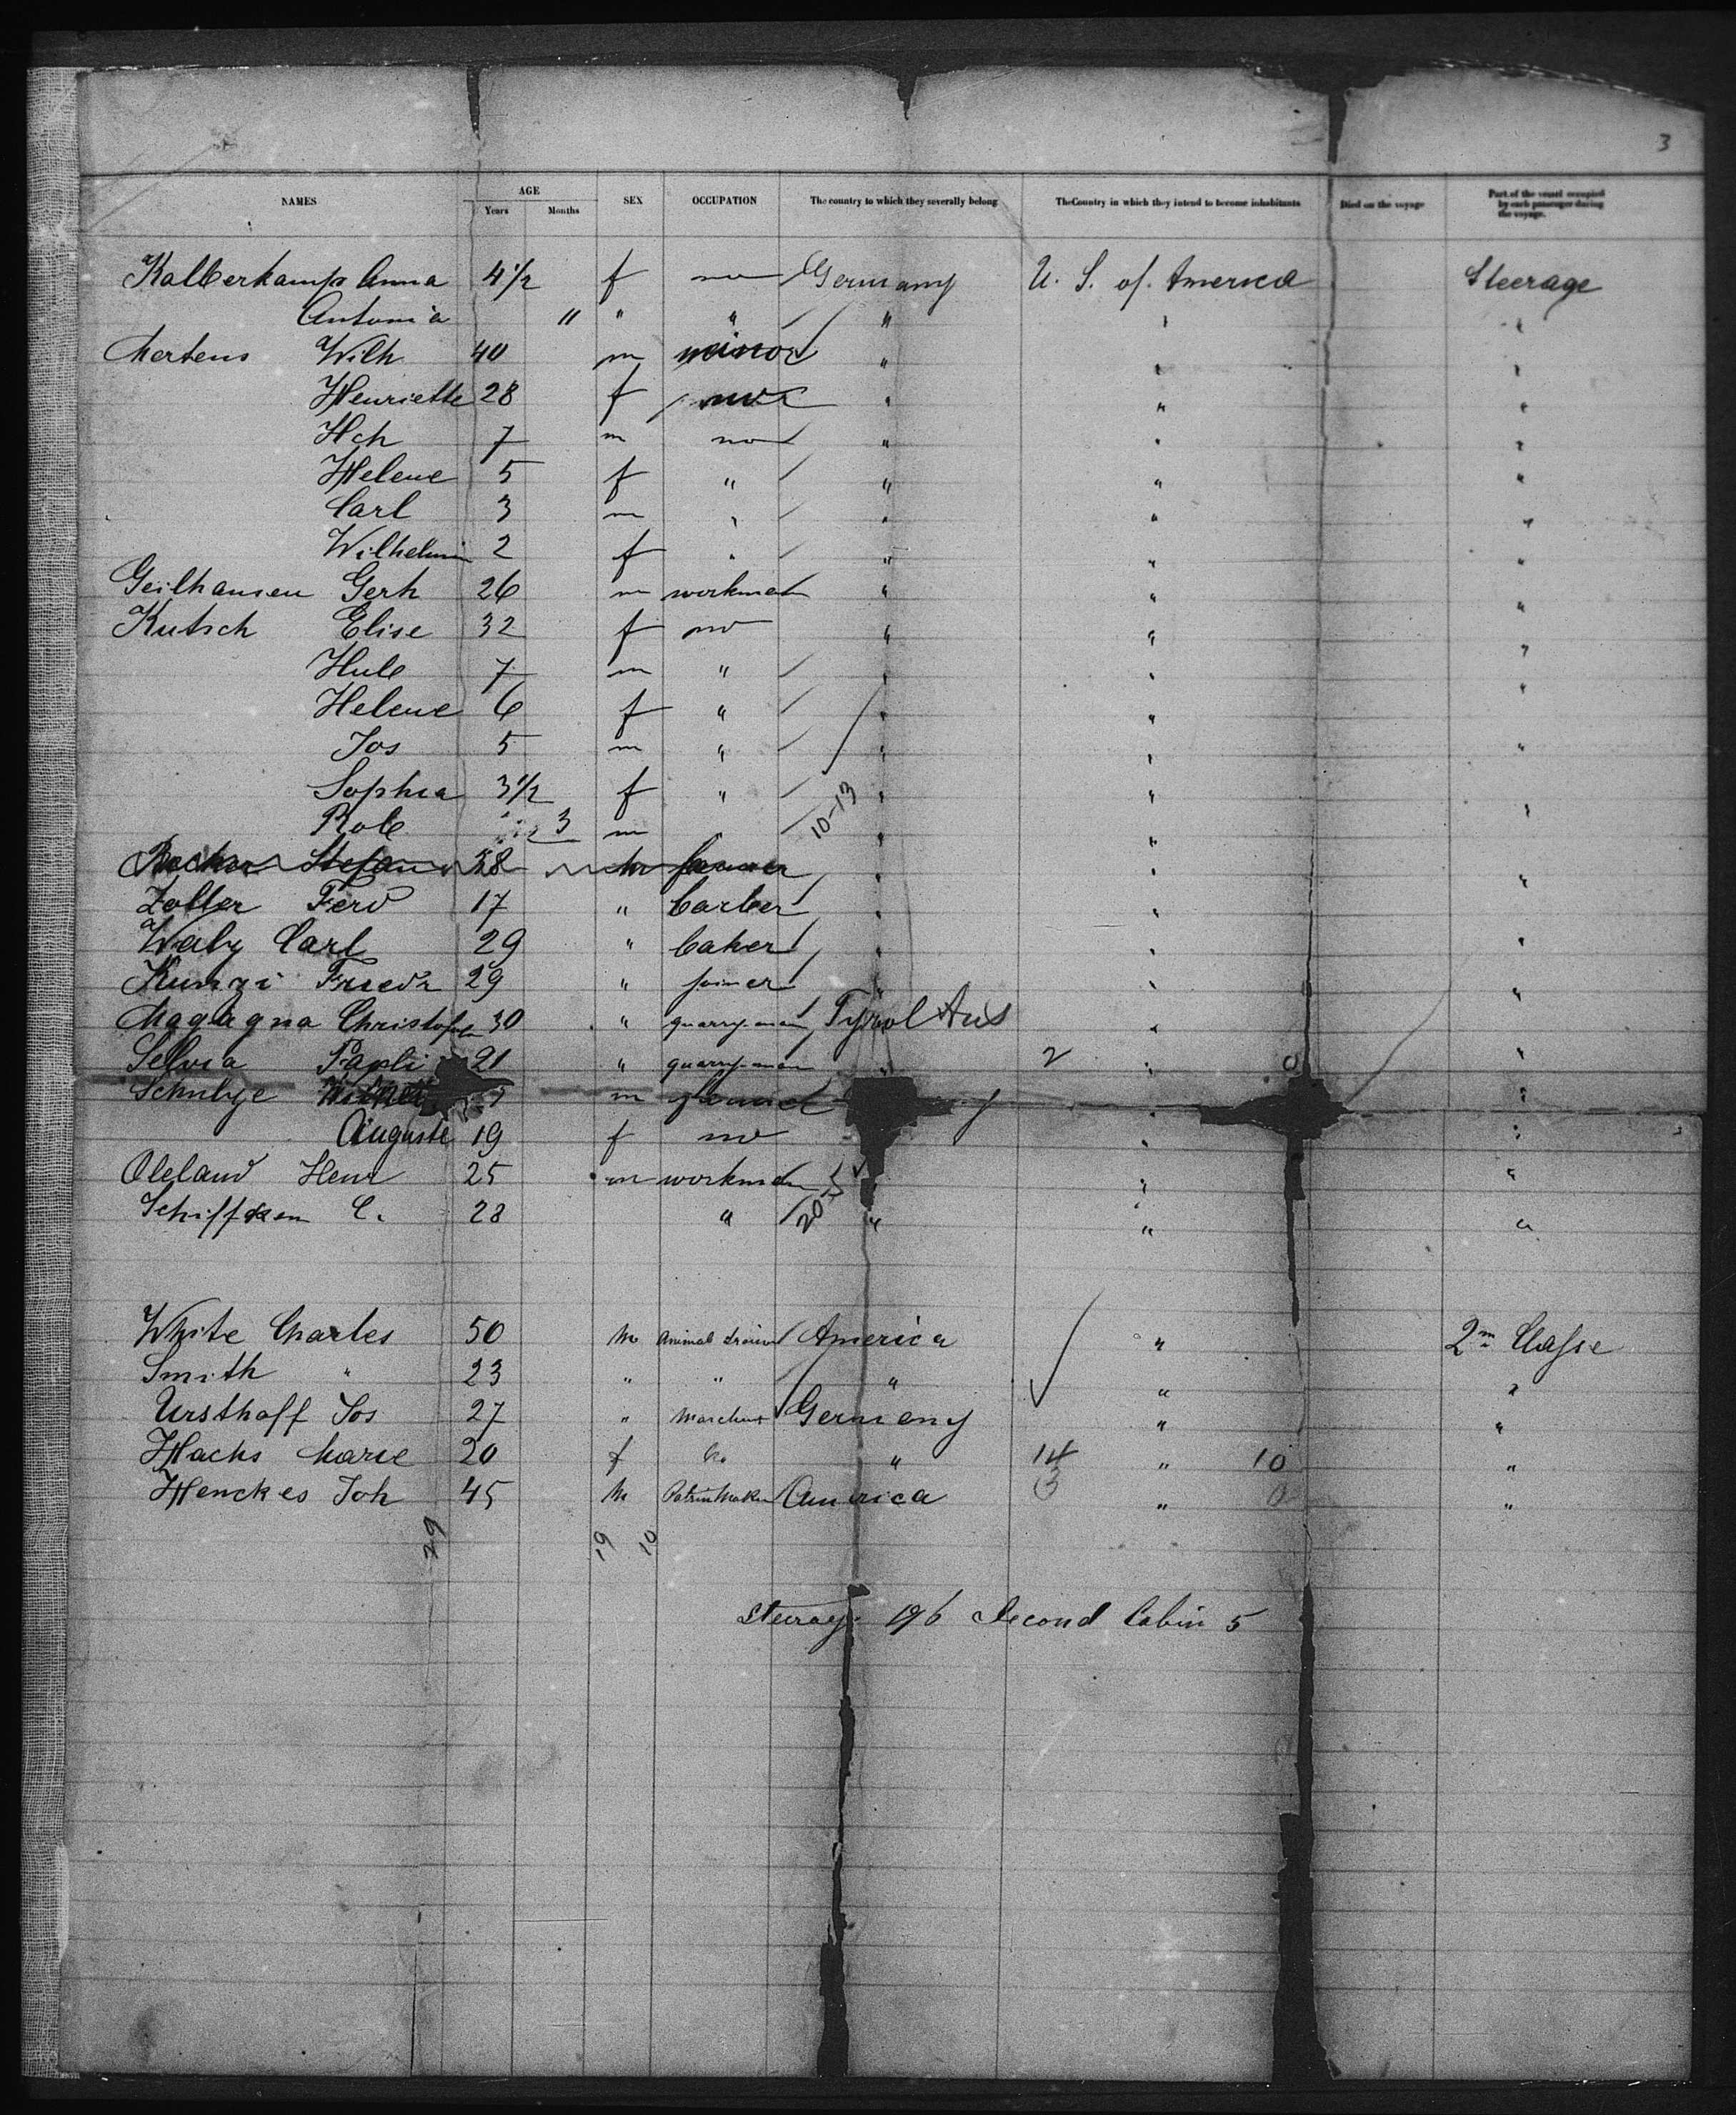 3
NAMES AGE Years Months SEX OCCUPATION The country to which they severally belong The Country in which they intend to become inhabitants Died on the voyage Part of the vessel occupied by each passenger during the voyage.
Kalberkamp Anna 4 1/2 f no Germany U. S. of America Steerage
Antonia 11 " " " " "
Mertens Wilh 40 m " " "
Henriette 28 f " " "
Hch 7 m no " " "
Helene 5 f " " " "
Carl 3 m " " " "
Wilhelmin 2 f " " " "
Geilhausen Gerh 26 m workman " " "
Kutsch Elise 32 f no " " "
Hub 7 m " " " "
Helene 6 f " " " "
Jos 5 m " " " "
Sophia 3 1/2 f " " " "
Rob 3 m 10-13 " " "
Stefan 38 m farmer " " "
Zoller Ferd 17 " barber " " "
Carl 29 " baker " " "
Kunzi Friedr 29 " joiner " " "
Magagna Christofolo 30 " quarry-man Tyrol Aus " "
Selvia 21 " quarry-man " 2 " 0 "
m " "
Auguste 19 f no " "
Henr 25 m workman " "
C. 28 " 20 " " "
White Charles 50 m Animal trainer America " 2m Classe
Smith " 23 " " " " "
Ursthoff Jos 27 " Germany " "
Hachs Marie 20 f " 14 " 10 "
Henckes Joh 45 m America 3 " 0 "
29 19 10
Steerage 196 Second Cabin 5